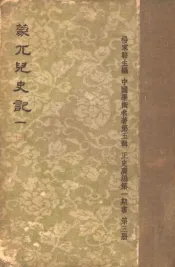 蒙兀兒史記一
楊家駱主編 中國學術名著第五輯 正史廣編第一期書 第三冊